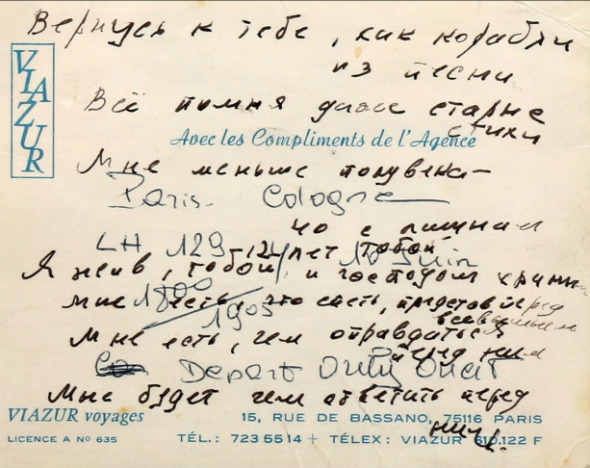 Вернусь к тебе, как корабли
из песни
VIAZUR
Всё помня даже старые
стихи
Avec les Compliments de l'Agence
Мне меньше полувека -
Paris - Cologne
с лишним
LH 129 10 Juin
12 лет тобой
Я жив, тобой и господом храним
1800
мне есть, что спеть, представ перед
1905
всевышним
Мне есть, чем оправдаться
перед ним
Depart Orly Ouest
Мне будет чем ответить перед
ним.
VIAZUR voyages
15, RUE DE BASSANO, 75116 PARIS
LICENCE A N° 635
TÉL.: 723 55 14 + TÉLEX: VIAZUR 610.122 F